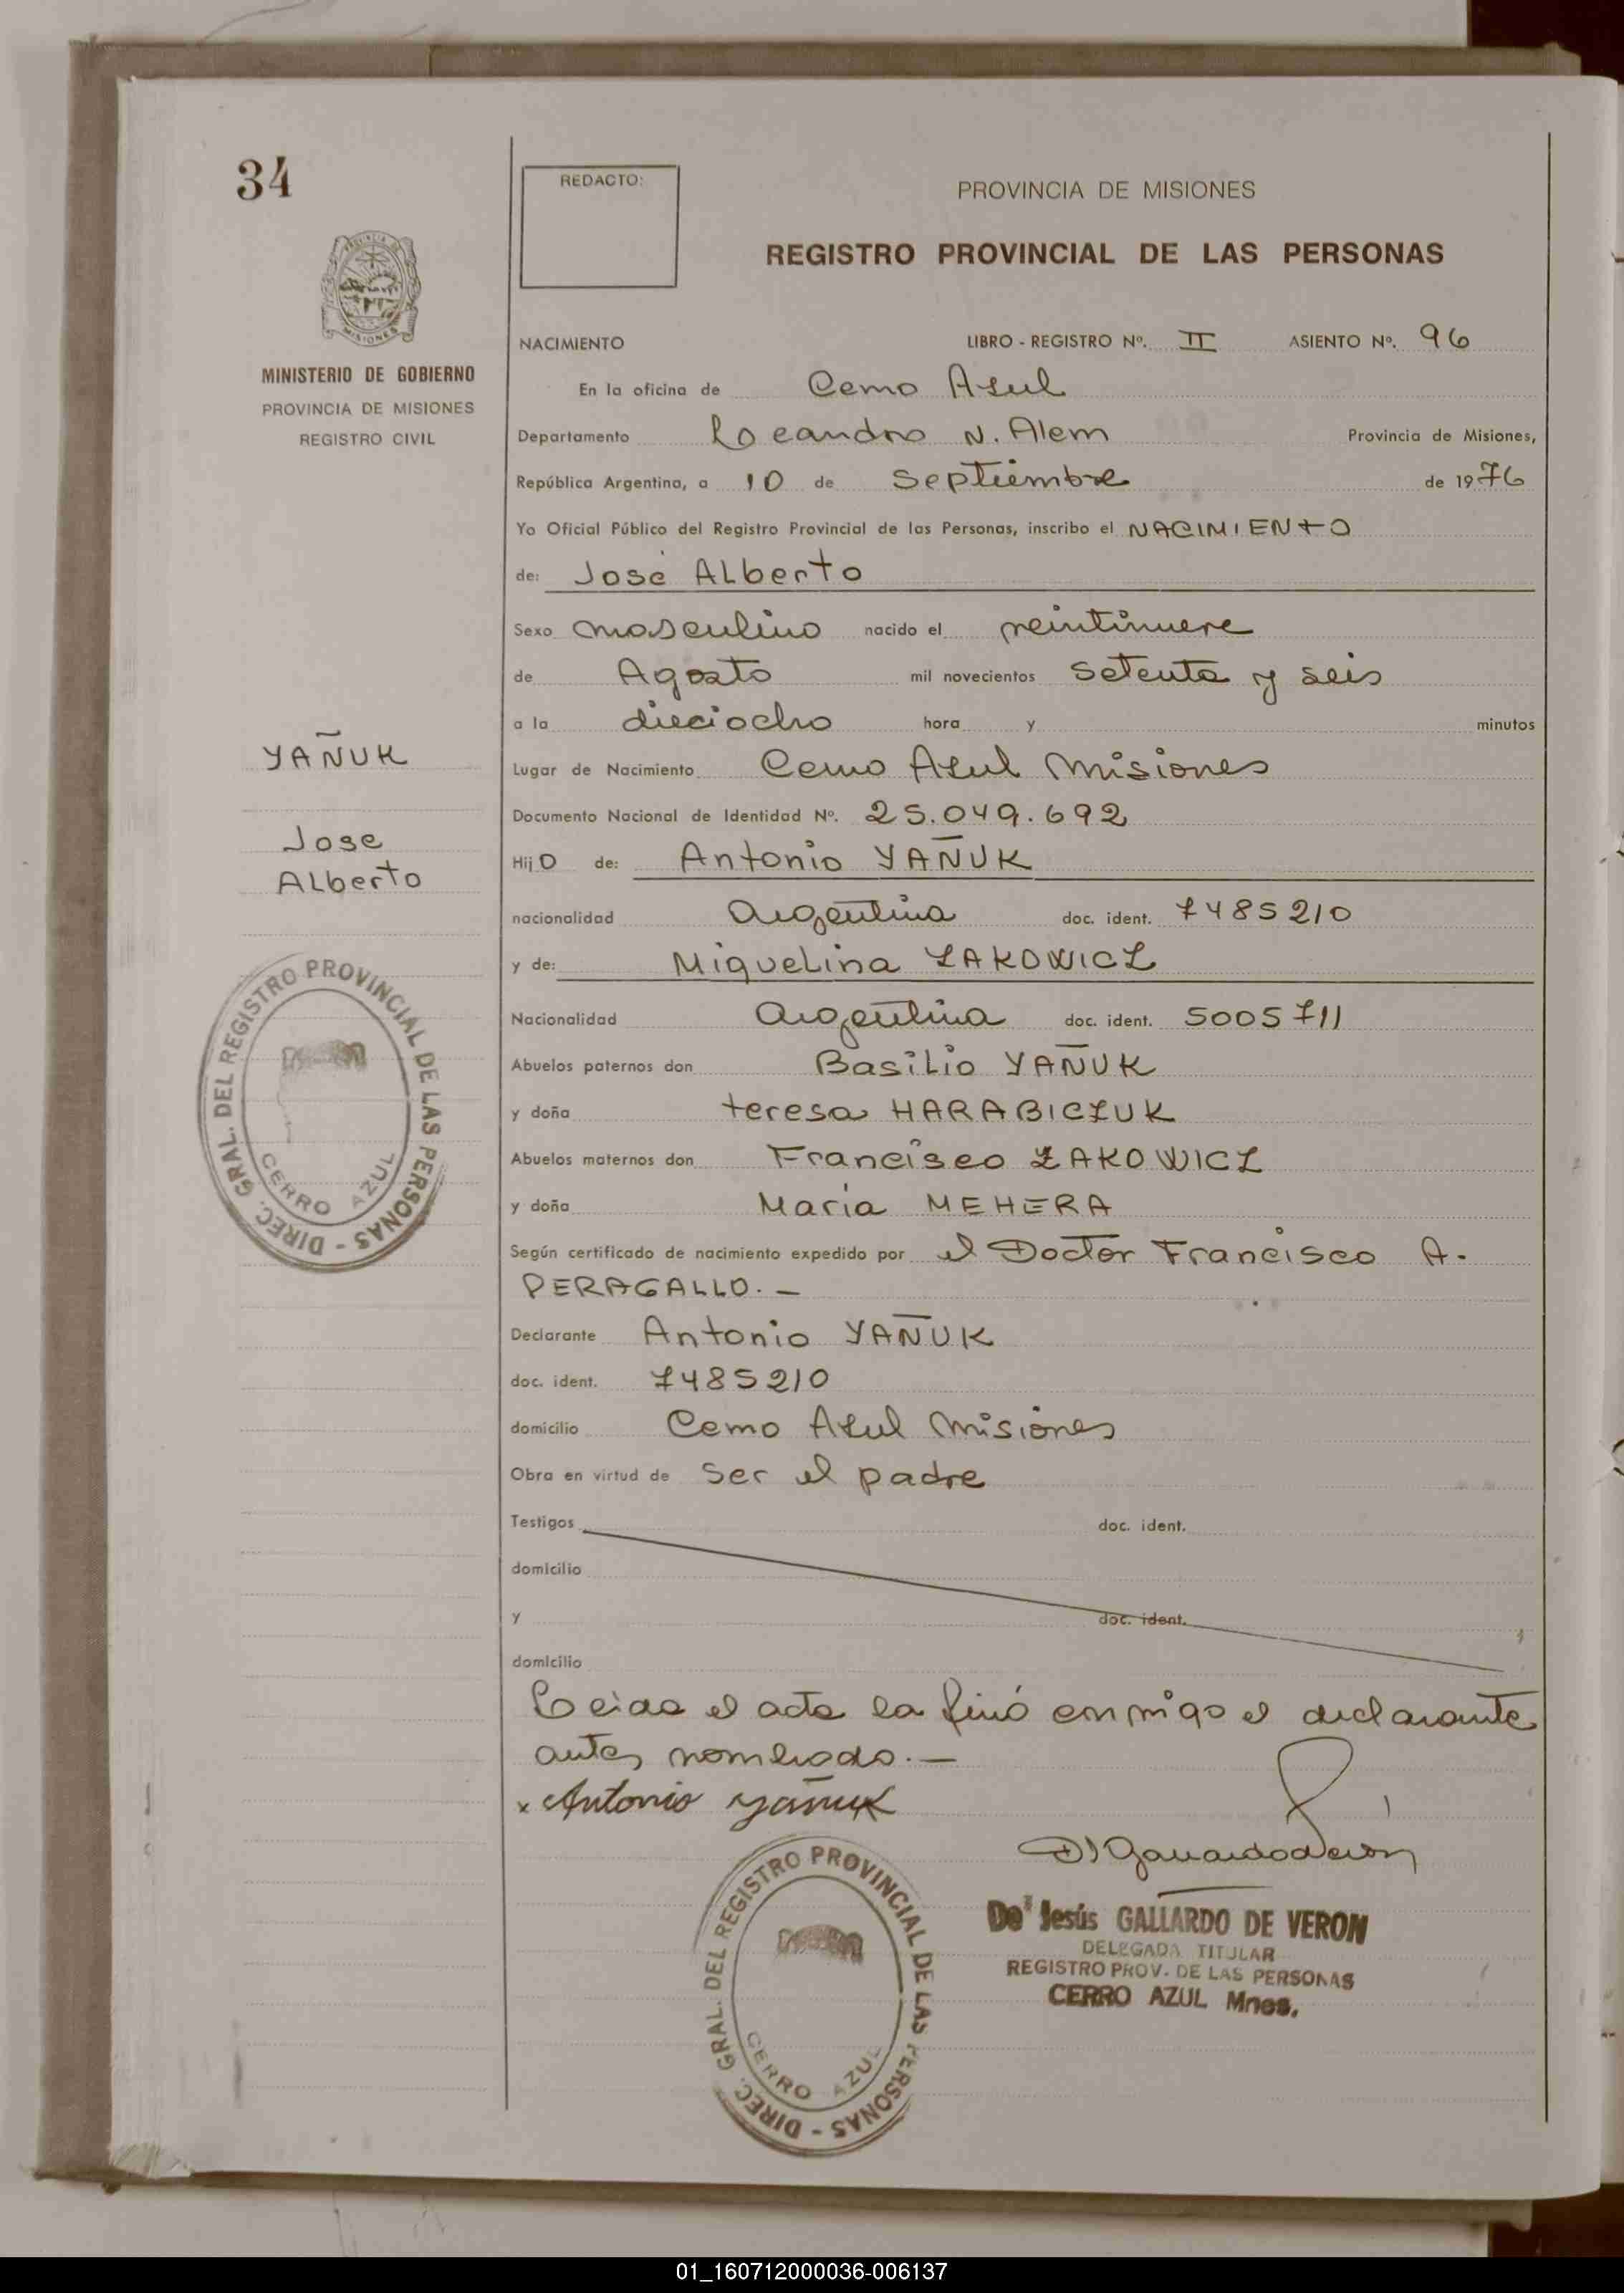 34
REDACTO:
PROVINCIA DE MISIONES
REGISTRO PROVINCIAL DE LAS PERSONAS
MINISTERIO DE GOBIERNO
PROVINCIA DE MISIONES
REGISTRO CIVIL
NACIMIENTO LIBRO - REGISTRO Nº. II ASIENTO Nº. 96
En la oficina de Cerro Azul
Departamento Leandro N. Alem Provincia de Misiones,
República Argentina, a 10 de Septiembre de 1976
Yo Oficial Público del Registro Provincial de las Personas, inscribo el NACIMIENTO
de: José Alberto
Sexo masculino nacido el veintinueve
de Agosto mil novecientos setenta y seis
a la dieciocho hora y minutos
Lugar de Nacimiento Cerro Azul Misiones
Documento Nacional de Identidad Nº. 25.049.692
Hijo de: Antonio YAÑUK
nacionalidad Argentina doc. ident. 7485210
y de: Miguelina ZAKOWICZ
Nacionalidad Argentina doc. ident. 5005711
Abuelos paternos don Basilio YAÑUK
y doña teresa HARABICZUK
Abuelos maternos don Francisco ZAKOWICZ
y doña María MEHERA
Según certificado de nacimiento expedido por el Doctor Francisco A.
PERAGALLO. —
Declarante Antonio YAÑUK
doc. ident. 7485210
domicilio Cerro Azul Misiones
Obra en virtud de ser el padre
Testigos doc. ident.
domicilio
y doc. ident.
domicilio
Leida el acta la firmó conmigo el declarante
antes nombrado. —
x Antonio Yañuk
YAÑUK
Jose
Alberto
DIREC. GRAL. DEL REGISTRO PROVINCIAL DE LAS PERSONAS -
CERRO AZUL
DIREC. GRAL. DEL REGISTRO PROVINCIAL DE LAS PERSONAS -
CERRO AZUL
De Jesús GALLARDO DE VERON
DELEGADA TITULAR
REGISTRO PROV. DE LAS PERSONAS
CERRO AZUL Mnes.
01_160712000036-006137